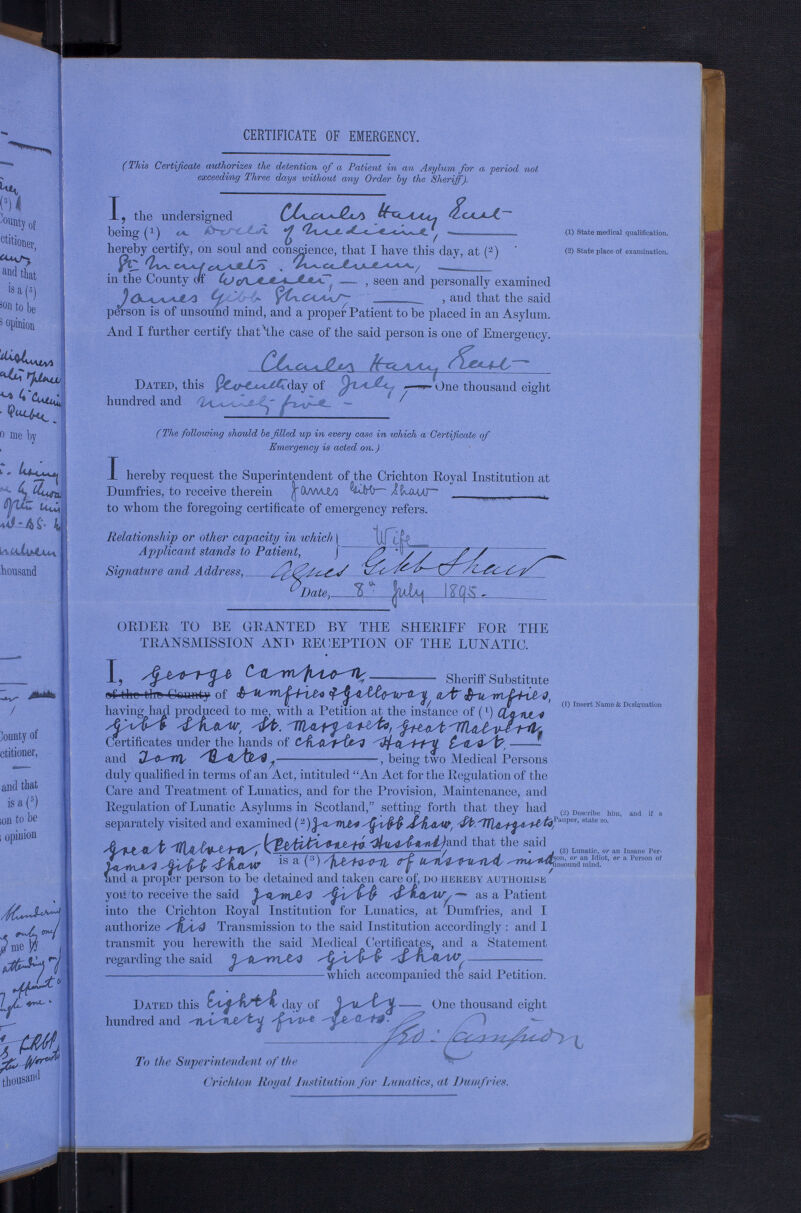 CERTIFICATE OF EMERGENCY.
(This Certificate authorizes the detention of a Patient in an Asylum for a period not
exceeding Three days without any Order by the Sheriff).
I, the undersigned Charles Harry East
being (1) a Doctor of Medicine,
hereby certify, on soul and conscience, that I have this day, at (2)
St Margarets, Malvern,
in the County of Worcester, — , seen and personally examined
James Gibb Shaw, , and that the said
person is of unsound mind, and a proper Patient to be placed in an Asylum.
And I further certify that the case of the said person is one of Emergency.
Charles Harry East
DATED, this Seventh day of July — One thousand eight
hundred and ninety five -
(1) State medical qualification.
(2) State place of examination.
(The following should be filled up in every case in which a Certificate of
Emergency is acted on.)
I hereby request the Superintendent of the Crichton Royal Institution at
Dumfries, to receive therein James Gibb Shaw
to whom the foregoing certificate of emergency refers.
Relationship or other capacity in which
Applicant stands to Patient, } Wife
Signature and Address, Agnes Gibb Shaw
Date, 8th July 1895.
ORDER TO BE GRANTED BY THE SHERIFF FOR THE
TRANSMISSION AND RECEPTION OF THE LUNATIC.
I, George Campion, Sheriff Substitute
of the the County of Dumfries & Galloway, at Dumfries,
having had produced to me, with a Petition at the instance of (1) Agnes
Gibb Shaw, St. Margarets, Great Malvern,
Certificates under the hands of Charles Harry East,
and Tom Bates, , being two Medical Persons
duly qualified in terms of an Act, intituled "An Act for the Regulation of the
Care and Treatment of Lunatics, and for the Provision, Maintenance, and
Regulation of Lunatic Asylums in Scotland," setting forth that they had
separately visited and examined (2) James Gibb Shaw, St. Margarets,
Great Malvern, (Petitioners Husband) and that the said
James Gibb Shaw is a (3) person of unsound mind
and a proper person to be detained and taken care of, DO HEREBY AUTHORISE
you to receive the said James Gibb Shaw, — as a Patient
into the Crichton Royal Institution for Lunatics, at Dumfries, and I
authorize his Transmission to the said Institution accordingly : and I
transmit you herewith the said Medical Certificates, and a Statement
regarding the said James Gibb Shaw,
which accompanied the said Petition.
DATED this Eighth day of July — One thousand eight
hundred and ninety five years.
Geo: Campion
To the Superintendent of the
Crichton Royal Institution for Lunatics, at Dumfries.
(1) Insert Name & Designation
(2) Describe him, and if a
Pauper, state so.
(3) Lunatic, or an Insane Per-
son, or an Idiot, or a Person of
unsound mind.
County of
and that
is a (3)
son to be
opinion
Quebec.
o me by
Malvern
housand
County of
etitioner,
and that
is a (3)
son to be
opinion
me
thousand